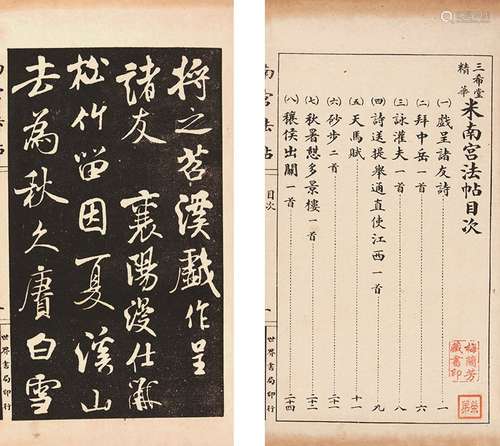 三希堂
精華
米南宮法帖目次
㈠戲呈諸友詩……一
㈡拜中岳一首……六
㈢詠灌夫一首……八
㈣詩送提舉通直使江西一首……九
㈤天馬賦……十一
㈥砂步二首……二十一
㈦秋暑憩多景樓一首……二十三
㈧穰侯出關一首……二十四
梅蘭芳
藏書印
南宮法帖
目次
一
世界書局印行
將之苕溪戲作呈
諸友 襄陽漫仕黻
松竹留因夏溪山
去為秋久賡白雪
南宮法帖
世界書局印行